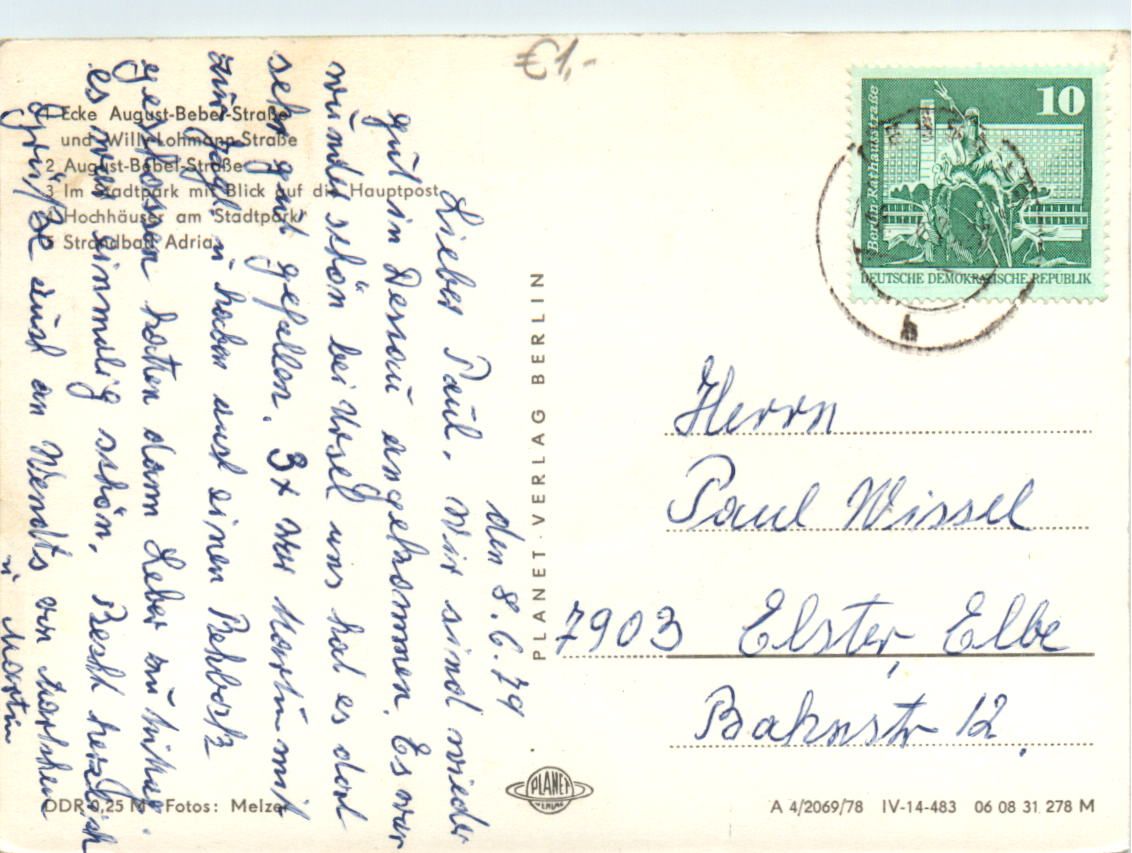 €1,-
1 Ecke August-Bebel-Straße
und Willy-Lohmann-Straße
2 August-Bebel-Straße
3 Im Stadtpark mit Blick auf die Hauptpost
4 Hochhäuser am Stadtpark
5 Strandbad Adria
den 8.6.79
Lieber Paul. Wir sind wieder
gut in Dessau angekommen. Es war
wunderschön bei Ursel uns hat es dort
sehr gut gefallen. 3x war Martin mit
zur Jagd u haben auch einen Rehbock
geschossen hatten dann Leber
es war einmalig schön. Recht herzlich
Grüße auch an Wendts von
u Martin
PLANET-VERLAG BERLIN
10
Berlin-Rathausstraße
DEUTSCHE DEMOKRATISCHE REPUBLIK
b
Herrn
Paul Wissel
7903 Elster, Elbe
Bahnstr 12.
PLANET
VERLAG
DDR 0,25 M Fotos: Melzer
A 4/2069/78 IV-14-483 06 08 31 278 M